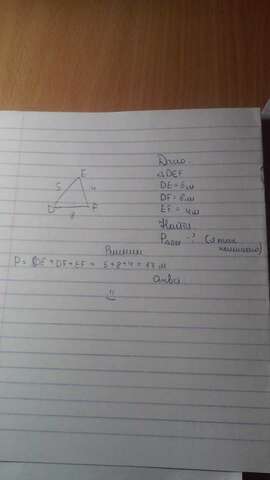 Дано
△DEF
DE = 5 м
DF = 8 м
EF = 4 м
Найти
P -?
E
5 4
D F
8
Решение
P = DE + DF + EF = 5 + 8 + 4 = 17 м
Ответ